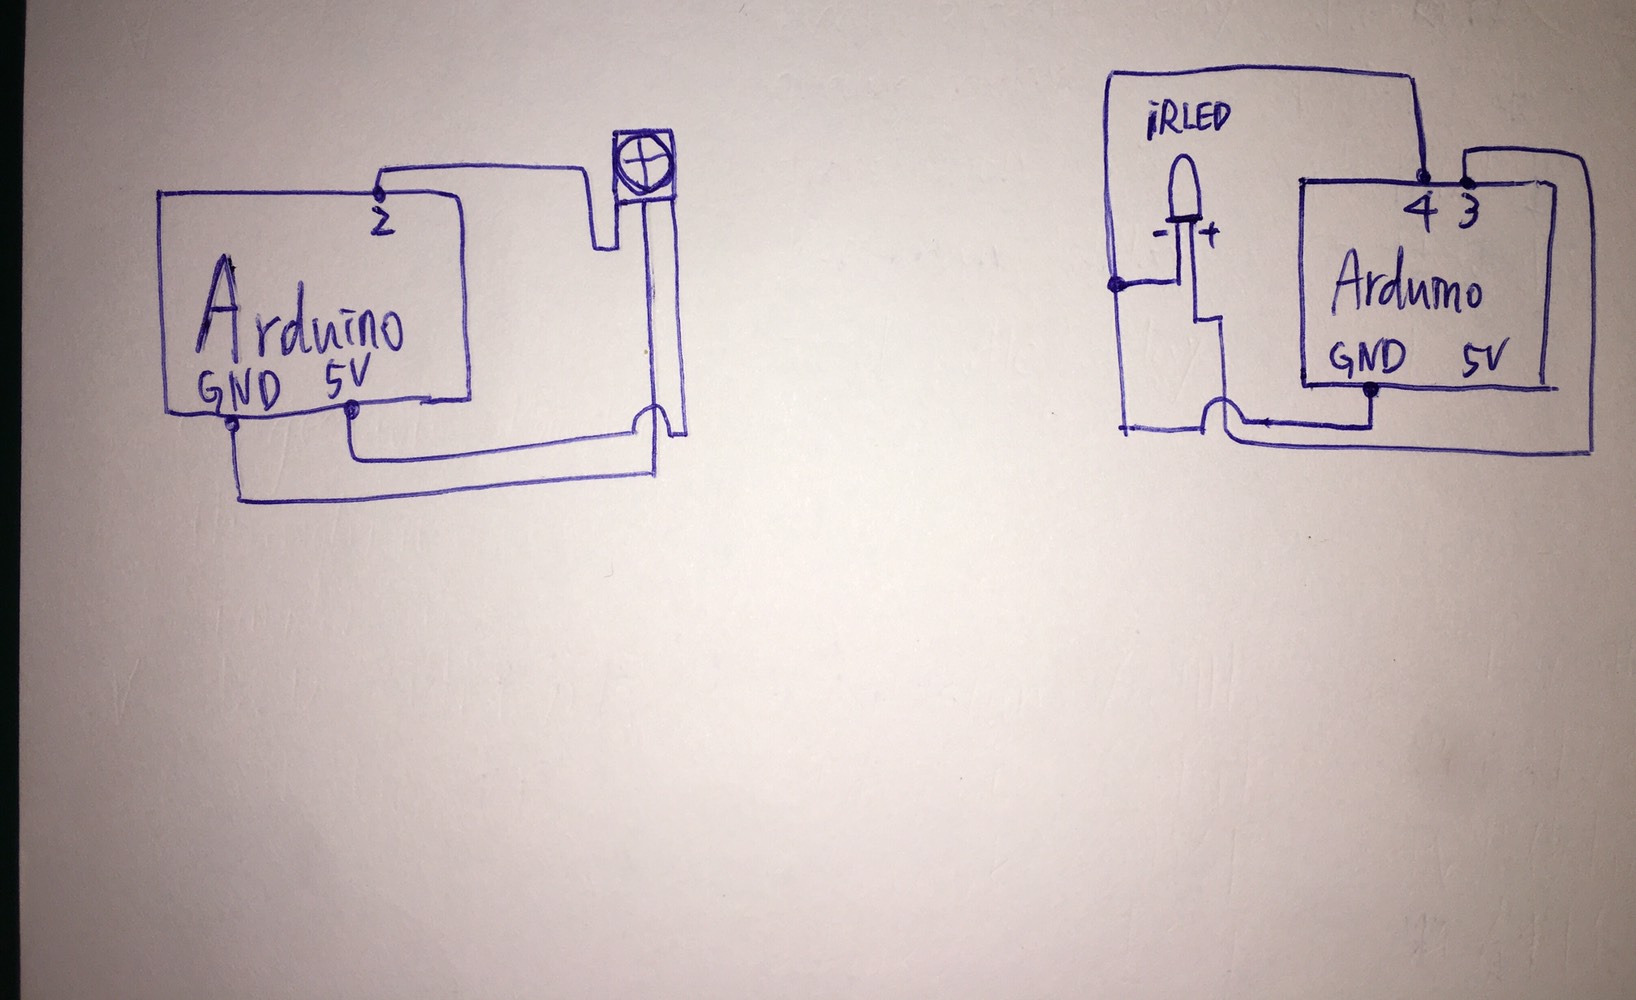 2
Arduino
GND 5V
iRLED
- +
4 3
Arduino
GND 5V